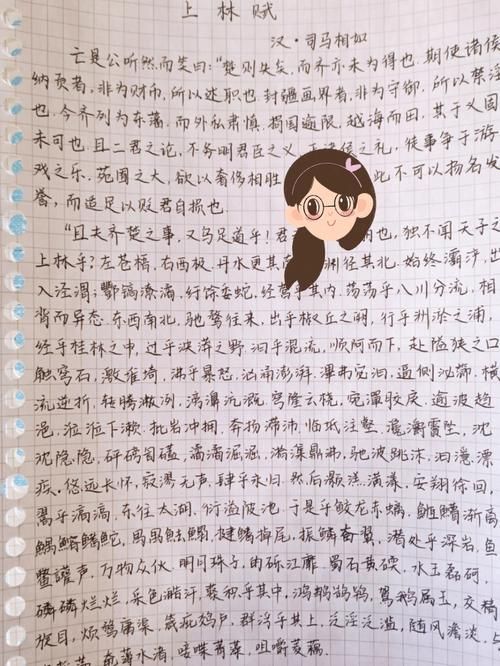 上林赋
汉·司马相如
亡是公听然而笑曰:“楚则失矣,而齐亦未为得也.夫使诸侯
纳贡者,非为财币,所以述职也.封疆画界者,非为守御,所以禁淫
也.今齐列为东藩,而外私肃慎,捐国逾限,越海而田,其于义固
未可也.且二君之论,不务明君臣之义,正诸侯之礼,徒事争于游
戏之乐,苑囿之大,欲以奢侈相胜 此不可以扬名发
誉,而适足以贬君自损也.
“且夫齐楚之事,又乌足道乎!君 也,独不闻天子之
上林乎?左苍梧,右西极.丹水更其南 渊径其北.始终灞浐,出
入泾渭;酆镐潦潏,纡馀委蛇,经营乎其内.荡荡乎八川分流,相
背而异态.东西南北,驰骛往来,出乎椒丘之阙,行乎洲淤之浦,
经乎桂林之中,过乎泱漭之野.汩乎混流,顺阿而下,赴隘狭之口,
触穹石,激堆埼,沸乎暴怒,汹涌澎湃.滭弗宓汩,逼侧泌瀄.横
流逆折,转腾潎洌,滂濞沆溉.穹隆云桡,宛潬胶戾.逾波趋
浥,涖涖下濑.批岩冲拥,奔扬滞沛.临坻注壑,瀺灂霣坠,沈
沈隐隐,砰磅訇礚,潏潏淈淈,湁潗鼎沸.驰波跳沫,汩漂
疾.悠远长怀,寂漻无声,肆乎永归.然后灏溔潢漾,安翔徐回,
翯乎滈滈,东注太湖,衍溢陂池.于是乎鲛龙赤螭,渐离
鳍掉尾,振鳞奋翼,潜处乎深岩,鱼
鳖讙声,万物众伙.明月珠子,的砾江靡.蜀石黄碝,水玉磊砢,
磷磷烂烂,采色澔汗,藂积乎其中.鸿鹔鹄鸨,鴐鹅属玉,交精
旋目,烦鹜庸渠,箴疵鵁卢,群浮乎其上,泛淫泛滥,随风澹淡,与
奄薄水渚,唼喋菁藻,咀嚼菱藕.